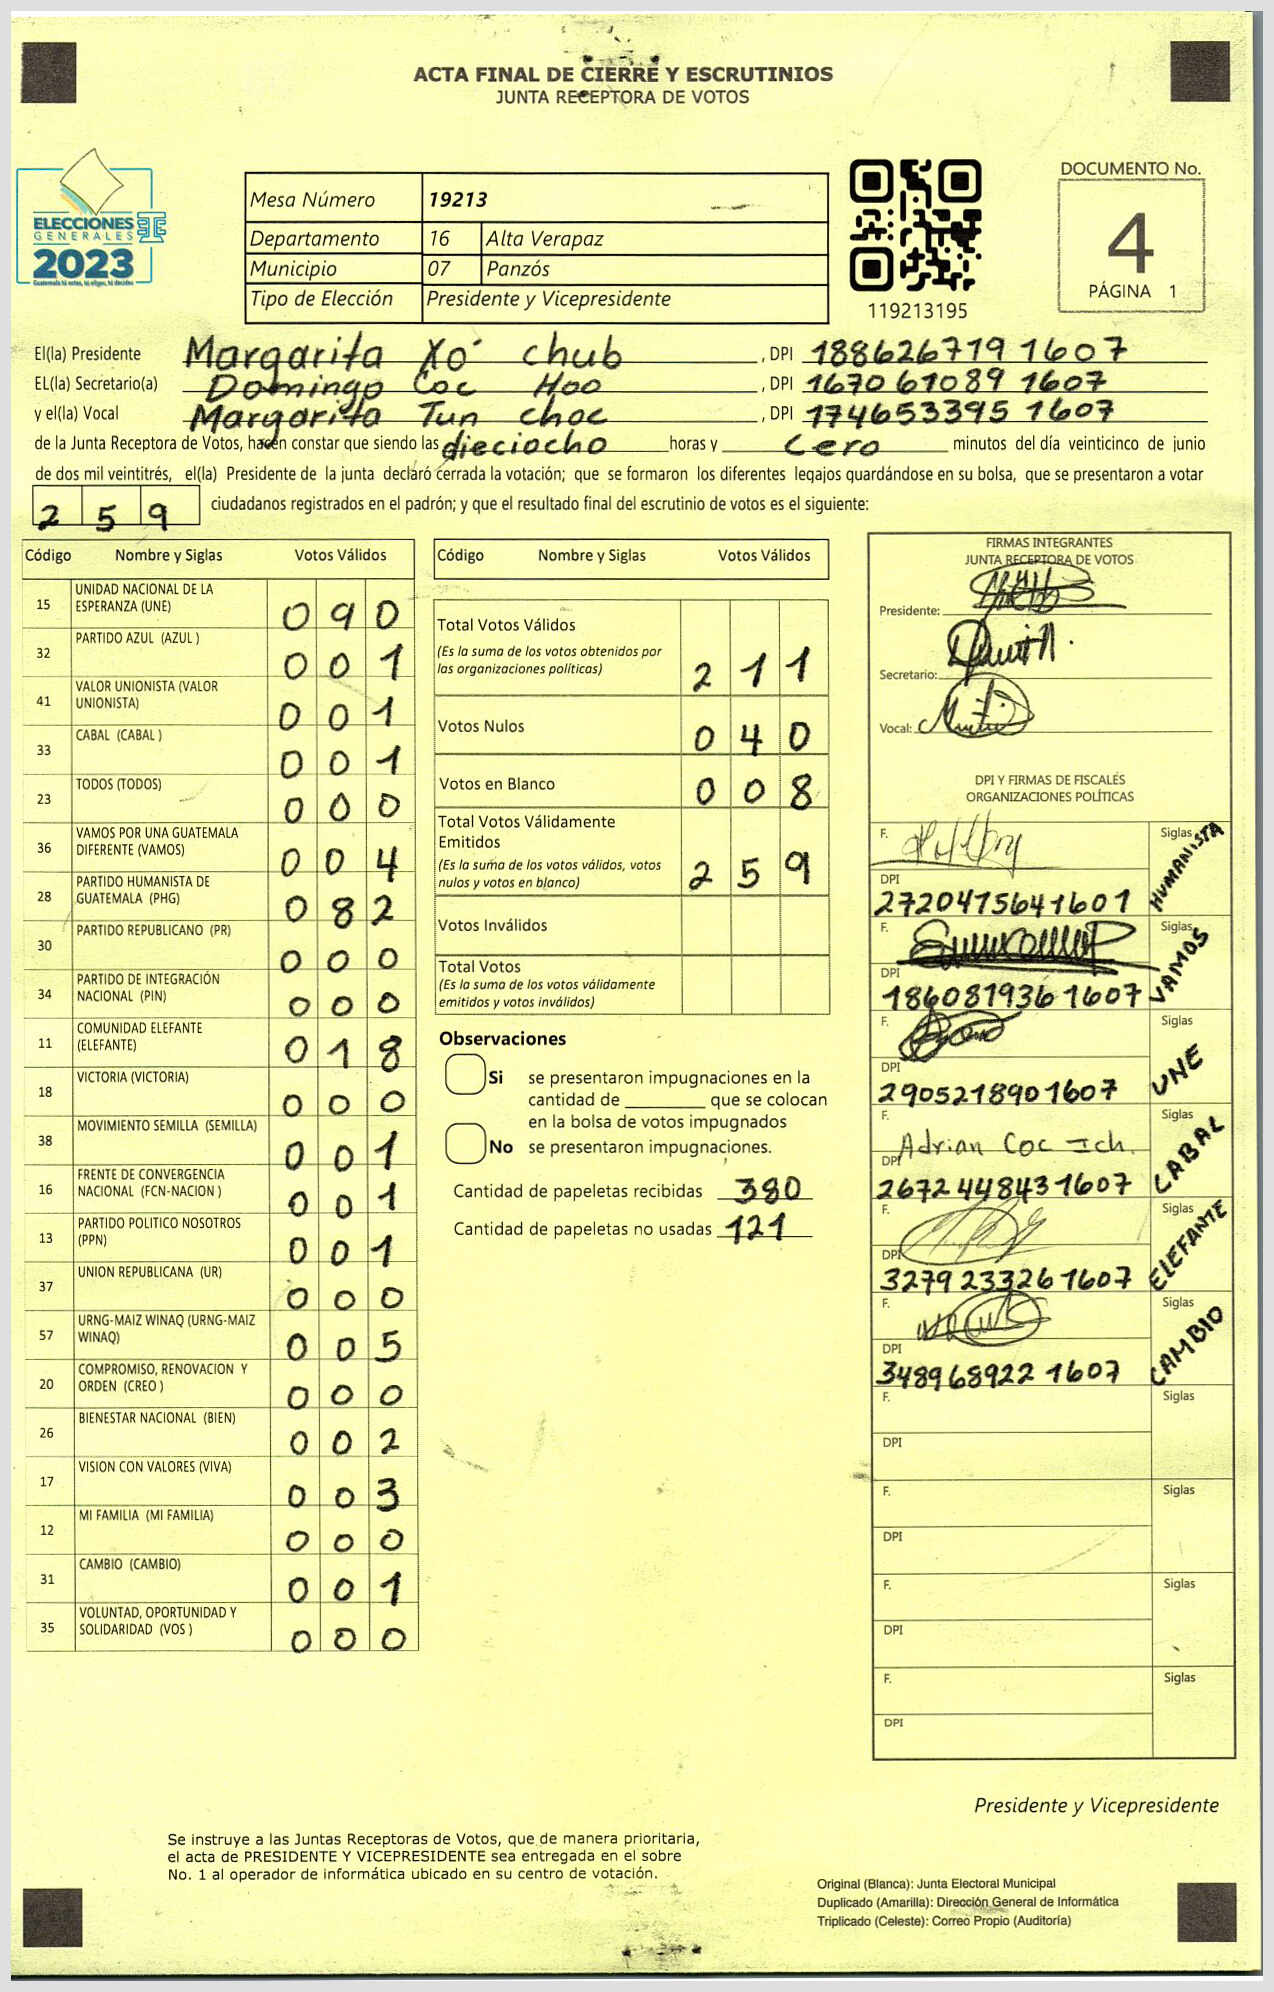 ACTA FINAL DE CIERRE Y ESCRUTINIOS
JUNTA RECEPTORA DE VOTOS
ELECCIONES
GENERALES
2023
Guatemala tú votas, tú eliges, tú decides
Mesa Número 19213
Departamento 16 Alta Verapaz
Municipio 07 Panzós
Tipo de Elección Presidente y Vicepresidente
119213195
DOCUMENTO No.
4
PÁGINA 1
El(la) Presidente Margarita Xo' chub , DPI 188626719 1607
EL(la) Secretario(a) Domingo Coc Hoo , DPI 1670 61089 1607
y el(la) Vocal Margarita Tun choc , DPI 174653395 1607
de la Junta Receptora de Votos, hacen constar que siendo las dieciocho horas y cero minutos del día veinticinco de junio
de dos mil veintitrés, el(la) Presidente de la junta declaró cerrada la votación; que se formaron los diferentes legajos guardándose en su bolsa, que se presentaron a votar
259 ciudadanos registrados en el padrón; y que el resultado final del escrutinio de votos es el siguiente:
Código Nombre y Siglas Votos Válidos
15 UNIDAD NACIONAL DE LA ESPERANZA (UNE) 090
32 PARTIDO AZUL (AZUL ) 001
41 VALOR UNIONISTA (VALOR UNIONISTA) 001
33 CABAL (CABAL ) 001
23 TODOS (TODOS) 000
36 VAMOS POR UNA GUATEMALA DIFERENTE (VAMOS) 004
28 PARTIDO HUMANISTA DE GUATEMALA (PHG) 082
30 PARTIDO REPUBLICANO (PR) 000
34 PARTIDO DE INTEGRACIÓN NACIONAL (PIN) 000
11 COMUNIDAD ELEFANTE (ELEFANTE) 018
18 VICTORIA (VICTORIA) 000
38 MOVIMIENTO SEMILLA (SEMILLA) 001
16 FRENTE DE CONVERGENCIA NACIONAL (FCN-NACION ) 001
13 PARTIDO POLITICO NOSOTROS (PPN) 001
37 UNION REPUBLICANA (UR) 000
57 URNG-MAIZ WINAQ (URNG-MAIZ WINAQ) 005
20 COMPROMISO, RENOVACION Y ORDEN (CREO ) 000
26 BIENESTAR NACIONAL (BIEN) 002
17 VISION CON VALORES (VIVA) 003
12 MI FAMILIA (MI FAMILIA) 000
31 CAMBIO (CAMBIO) 001
35 VOLUNTAD, OPORTUNIDAD Y SOLIDARIDAD (VOS ) 000
Código Nombre y Siglas Votos Válidos
Total Votos Válidos
(Es la suma de los votos obtenidos por
las organizaciones políticas) 211
Votos Nulos 040
Votos en Blanco 008
Total Votos Válidamente
Emitidos
(Es la suma de los votos válidos, votos
nulos y votos en blanco) 259
Votos Inválidos
Total Votos
(Es la suma de los votos válidamente
emitidos y votos inválidos)
Observaciones
Si se presentaron impugnaciones en la
cantidad de ________ que se colocan
en la bolsa de votos impugnados
No se presentaron impugnaciones.
Cantidad de papeletas recibidas 380
Cantidad de papeletas no usadas 121
FIRMAS INTEGRANTES
JUNTA RECEPTORA DE VOTOS
Presidente:
Secretario:
Vocal:
DPI Y FIRMAS DE FISCALES
ORGANIZACIONES POLÍTICAS
F. Siglas HUMANISTA
DPI
2720415641601
F. Siglas VAMOS
DPI
186081936 1607
F. Siglas UNE
DPI
2905218901607
F. Adrian Coc Ich. Siglas CABAL
DPI
2672 44843 1607
F. Siglas ELEFANTE
DPI
3279 23326 1607
F. Siglas CAMBIO
DPI
348968922 1607
F. Siglas
DPI
F. Siglas
DPI
F. Siglas
DPI
F. Siglas
DPI
Presidente y Vicepresidente
Se instruye a las Juntas Receptoras de Votos, que de manera prioritaria,
el acta de PRESIDENTE Y VICEPRESIDENTE sea entregada en el sobre
No. 1 al operador de informática ubicado en su centro de votación.
Original (Blanca): Junta Electoral Municipal
Duplicado (Amarilla): Dirección General de Informática
Triplicado (Celeste): Correo Propio (Auditoría)